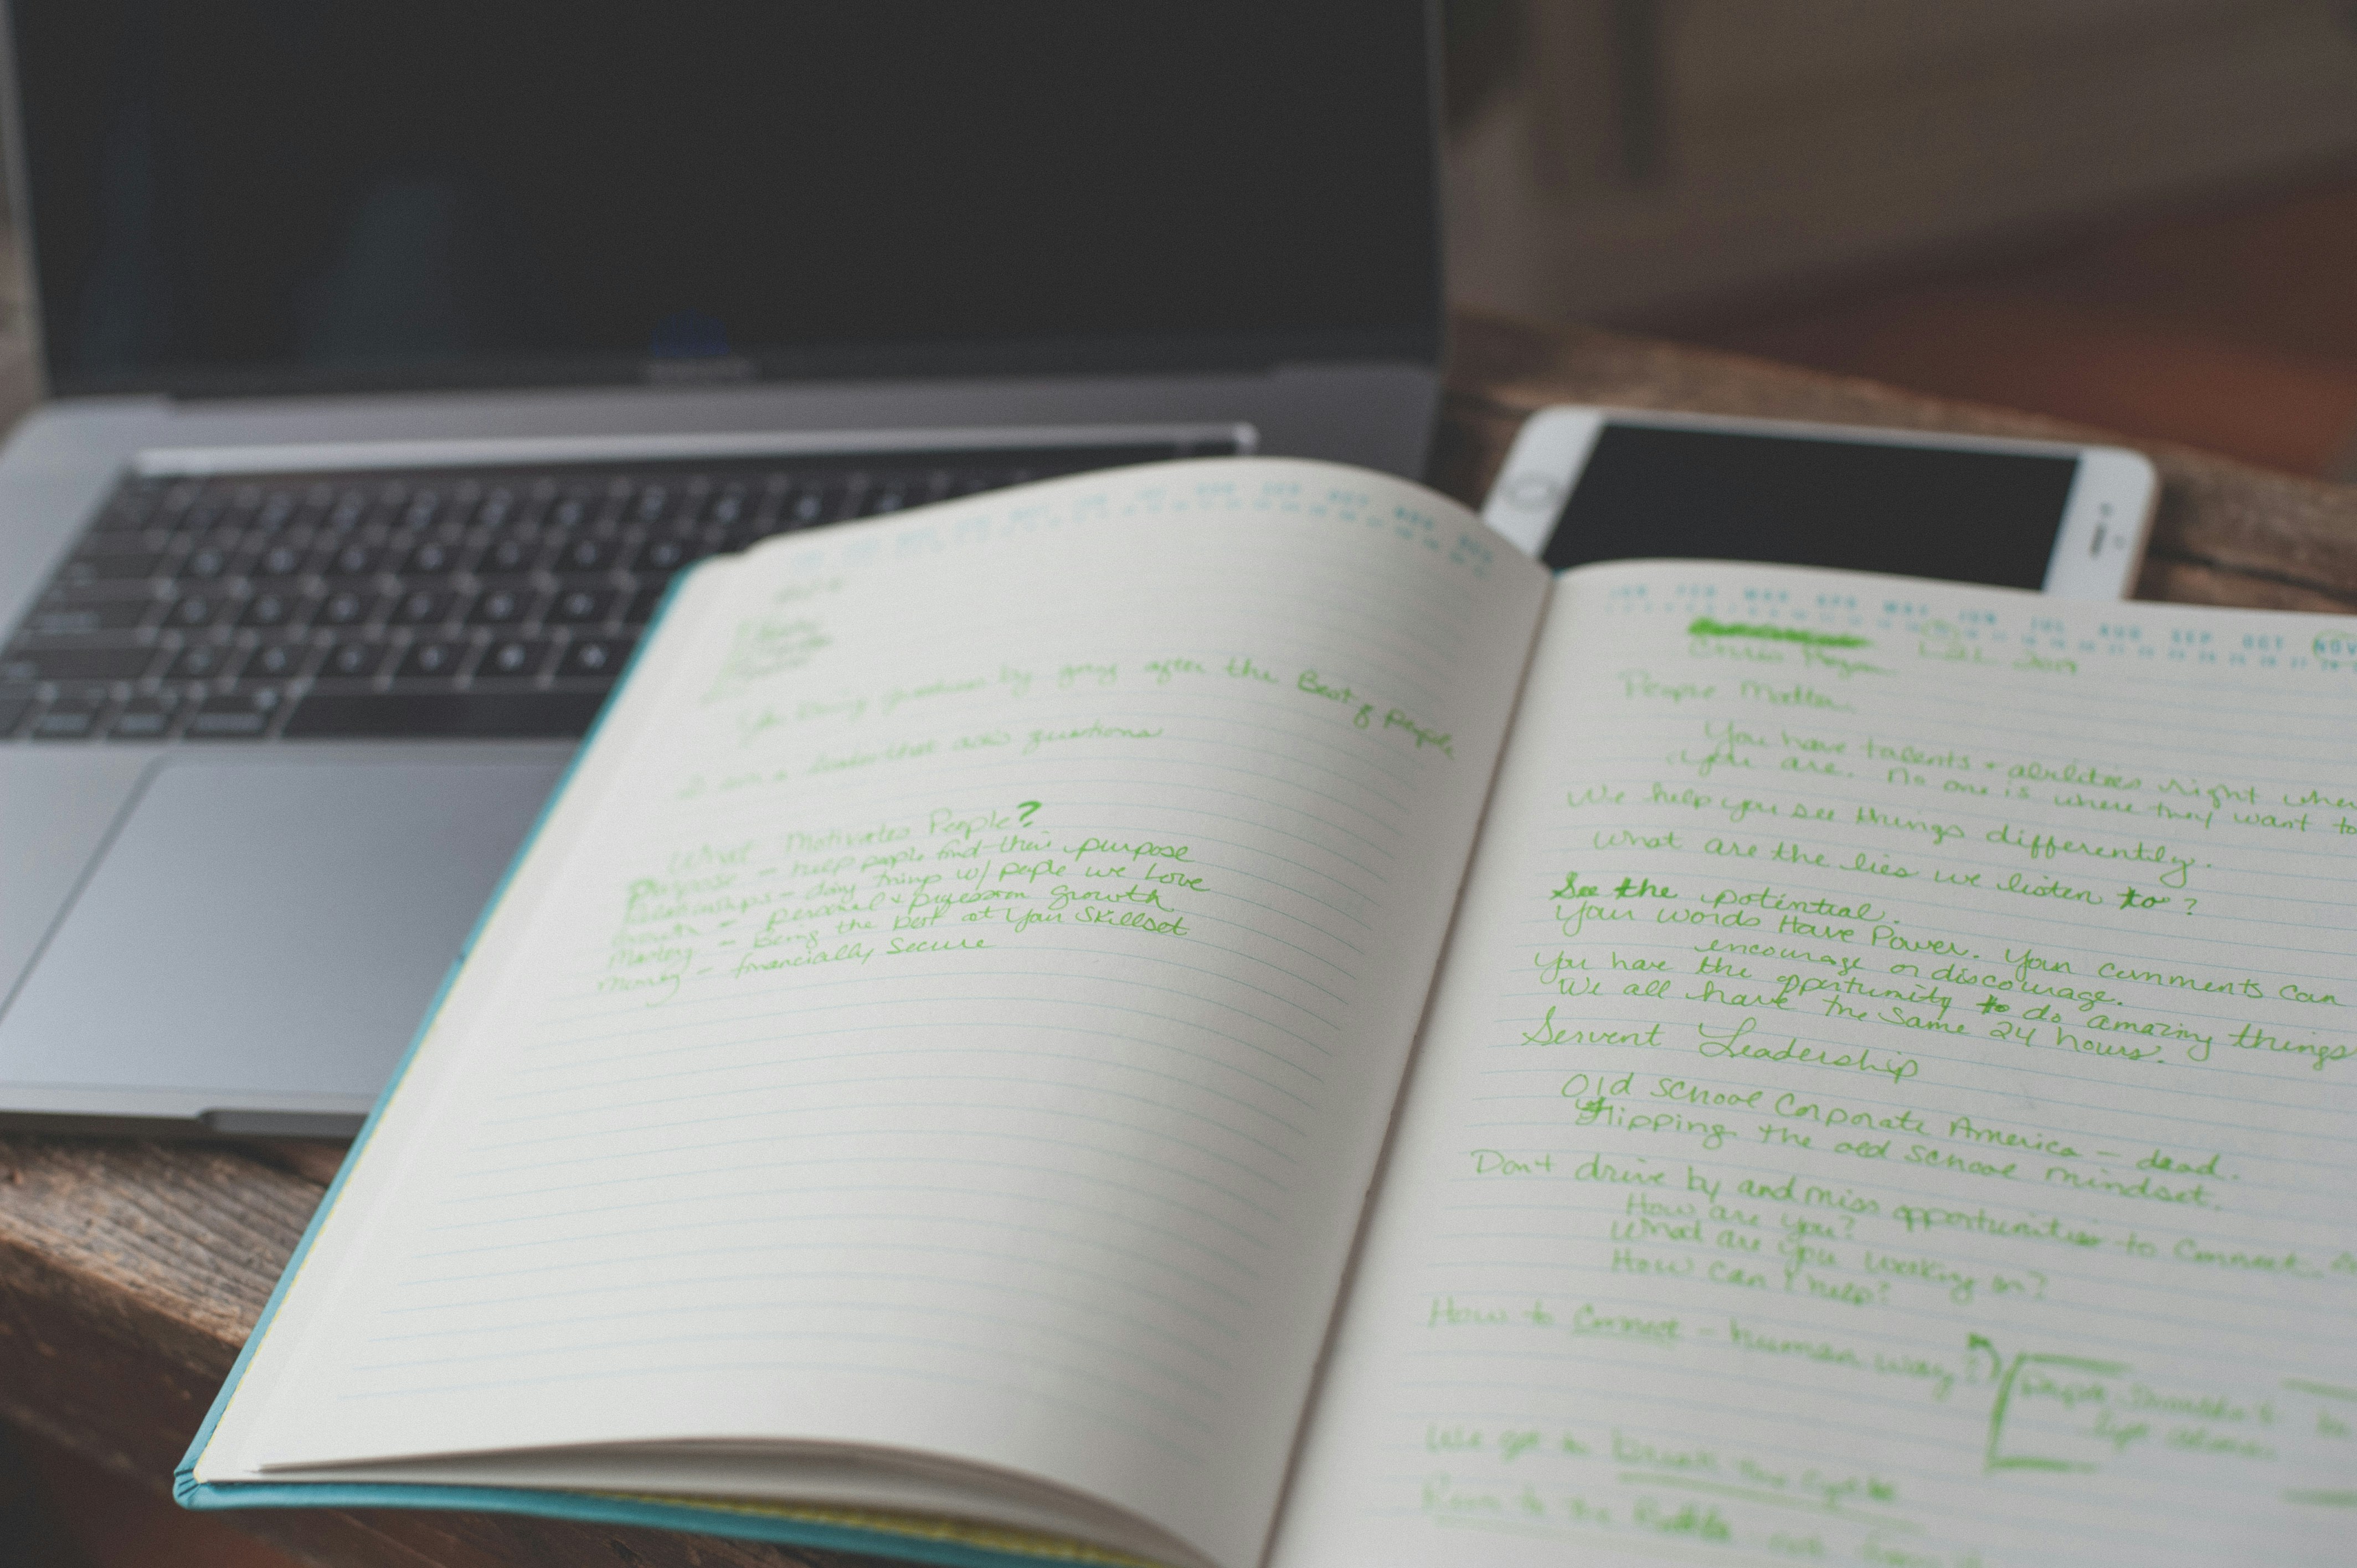 by going after the Best of people
leader that asks questions
What Motivates People?
Purpose - help people find their purpose
Relationships - doing things w/ people we Love
Growth - personal & profession growth
Mastery - Being the best at your skillset
Money - financially secure
JAN FEB MAR APR MAY JUN JUL AUG SEP OCT NOV
People Matter
You have talents + abilities right where
you are. No one is where they want to
We help you see things differently.
What are the lies we listen to?
See the potential.
Your words Have Power. Your comments can
encourage or discourage.
You have the opportunity to do amazing things
We all have the same 24 hours.
Servent Leadership
Old School Corporate America - dead.
Flipping the old school mindset.
Don't drive by and miss opportunities to Connect
How are you?
What are you working on?
How can I help?
How to Connect - human way?
We got to break the cycle
Run to the Battle